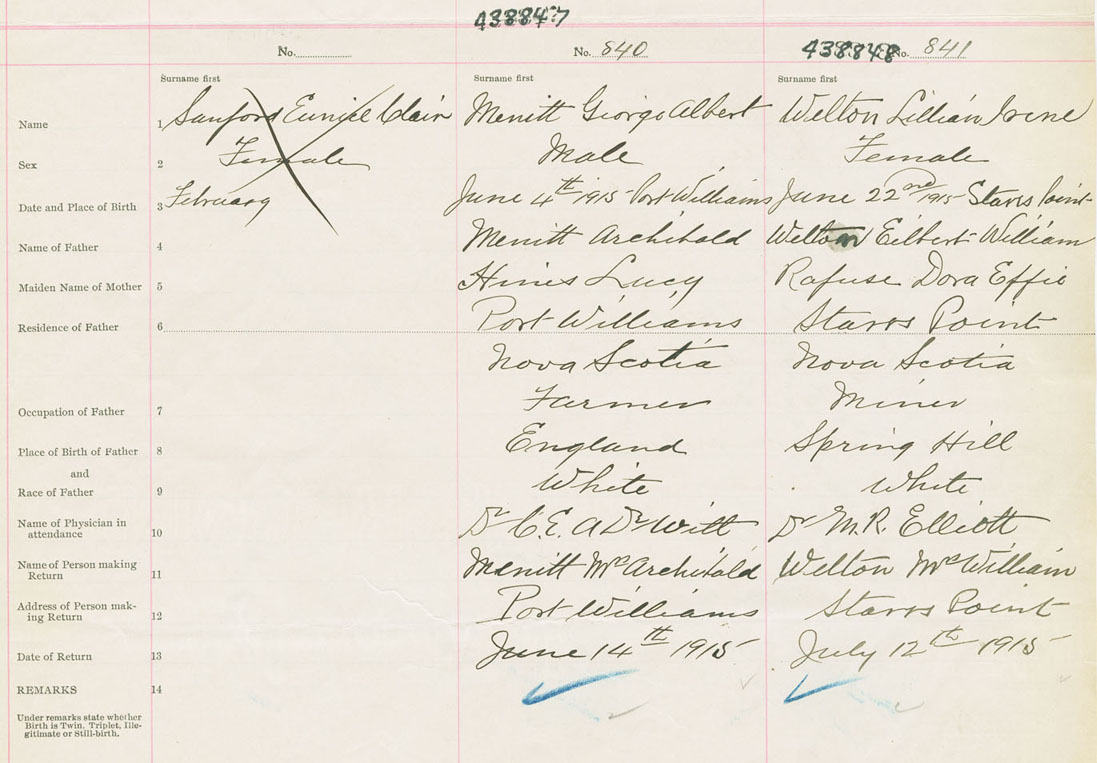 438847
No. No. 840 438848 No. 841
Surname first Surname first Surname first
Name 1 Sanford Eunice Clair Merritt George Albert Welton Lillian Irene
Sex 2 Female Male Female
Date and Place of Birth 3 February June 4th 1915 Port Williams June 22nd 1915 Starrs Point
Name of Father 4 Merritt Archibald Welton Eilbert William
Maiden Name of Mother 5 Hines Lucy Rafuse Dora Effie
Residence of Father 6 Port Williams Starrs Point
Nova Scotia Nova Scotia
Occupation of Father 7 Farmer Miner
Place of Birth of Father 8 England Spring Hill
and
Race of Father 9 White White
Name of Physician in
attendance 10 Dr C. E. A DeWitt Dr M. R. Elliott
Name of Person making
Return 11 Merritt Mr Archibald Welton Mr William
Address of Person mak-
ing Return 12 Port Williams Starrs Point
Date of Return 13 June 14th 1915 July 12th 1915
REMARKS 14
Under remarks state whether
Birth is Twin, Triplet, Ille-
gitimate or Still-birth.